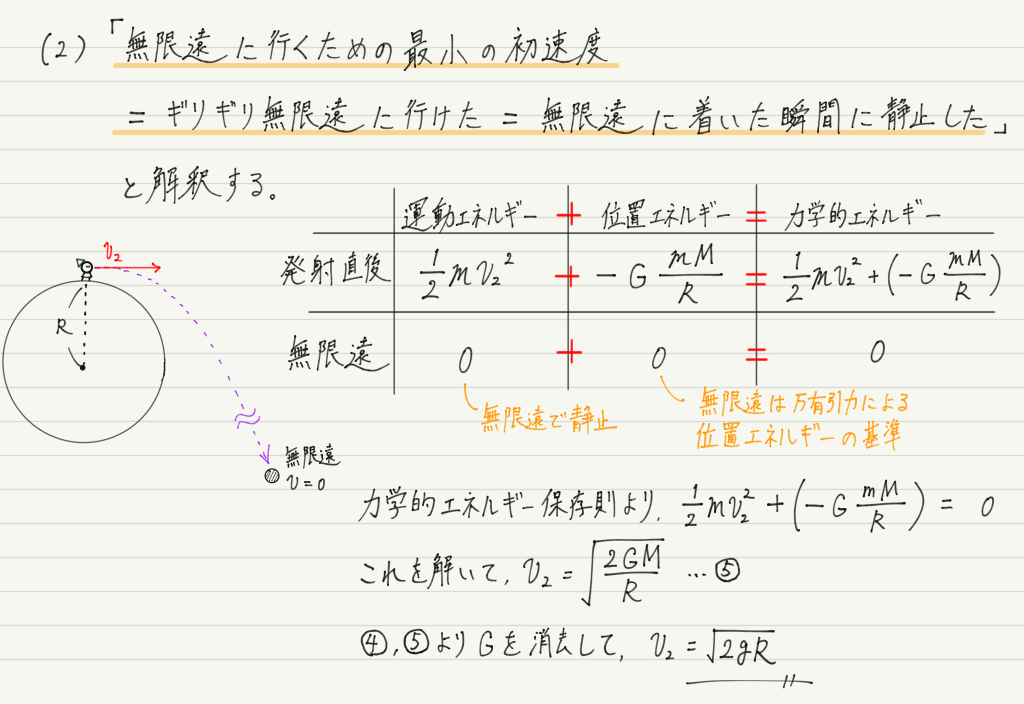 (2) 「無限遠に行くための最小の初速度
= ギリギリ無限遠に行けた = 無限遠に着いた瞬間に静止した」
と解釈する。
運動エネルギー + 位置エネルギー = 力学的エネルギー
発射直後 1/2 mv₂² + −G mM/R = 1/2 mv₂² + (−G mM/R)
無限遠 0 + 0 = 0
無限遠で静止
無限遠は万有引力による
位置エネルギーの基準
v₂
R
無限遠
v=0
力学的エネルギー保存則より, 1/2 mv₂² + (−G mM/R) = 0
これを解いて, v₂ = √(2GM/R) …⑤
④,⑤よりGを消去して, v₂ = √(2gR)